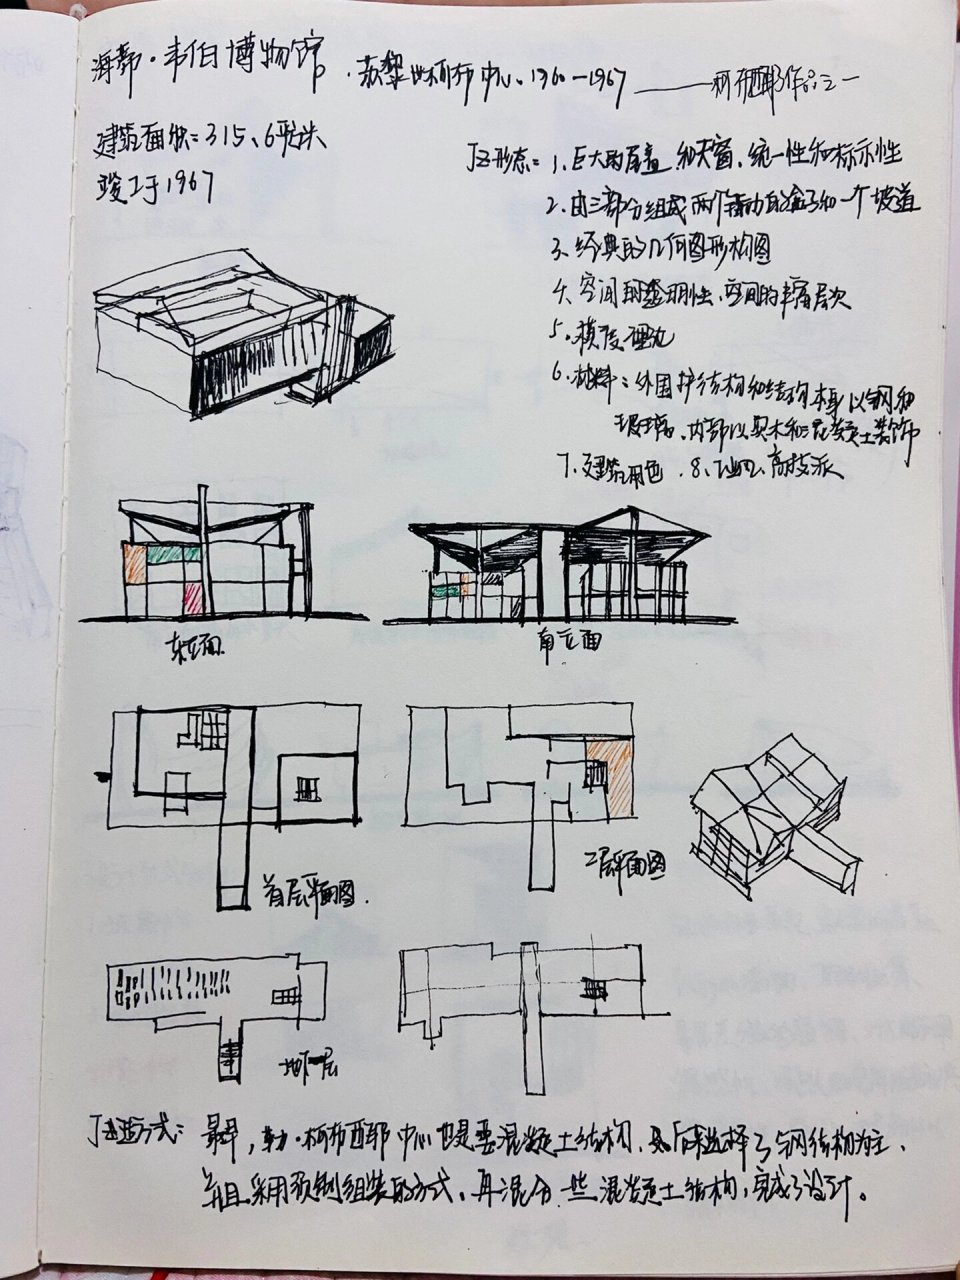 海蒂·韦伯博物馆 · 苏黎世柯布中心、1960—1967 ——柯布西耶作品之一
建筑面积=315、6平米
竣工于1967
形态= 1、巨大的屋盖和天窗、统一性和标示性
2、由三部分组成 两个盒子和一个坡道
3、经典的几何图形构图
4、空间的透明性、空间的丰富层次
5、模度理论
6、材料：外围护结构和结构本身以钢和
玻璃、内部以实木和混凝土装饰
7、建筑用色 . 8、工业、高技派
东立面
南立面
首层平面图.
2层平面图
地下一层
建造方式： 最早，勒·柯布西耶中心也是要混凝土结构、后来选择了钢结构为主、
并且采用预制组装的方式、再混合一些混凝土结构，完成了设计。